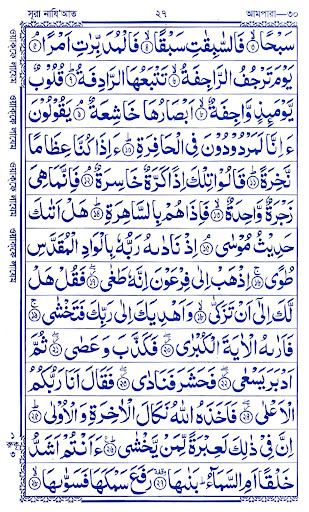 সূরা নাযি'আত ২৭ আমপারা—৩০
سَبْحًا ۝٣ فَالسّٰبِقٰتِ سَبْقًا ۝٤ فَالْمُدَبِّرٰتِ اَمْرًا ۝٥
يَوْمَ تَرْجُفُ الرَّاجِفَةُ ۝٦ تَتْبَعُهَا الرَّادِفَةُ ۝٧ قُلُوْبٌ
يَّوْمَئِذٍ وَّاجِفَةٌ ۝٨ اَبْصَارُهَا خَاشِعَةٌ ۝٩ يَقُوْلُوْنَ
ءَاِنَّا لَمَرْدُوْدُوْنَ فِى الْحَافِرَةِ ۝١٠ ءَاِذَا كُنَّا عِظَامًا
نَّخِرَةً ۝١١ قَالُوْا تِلْكَ اِذًا كَرَّةٌ خَاسِرَةٌ ۝١٢ فَاِنَّمَا هِىَ
زَجْرَةٌ وَّاحِدَةٌ ۝١٣ فَاِذَا هُمْ بِالسَّاهِرَةِ ۝١٤ هَلْ اَتٰىكَ
حَدِيْثُ مُوْسٰى ۝١٥ اِذْ نَادٰىهُ رَبُّهٗ بِالْوَادِ الْمُقَدَّسِ
طُوًى ۝١٦ اِذْهَبْ اِلٰى فِرْعَوْنَ اِنَّهٗ طَغٰى ۝١٧ فَقُلْ هَلْ
لَّكَ اِلٰى اَنْ تَزَكّٰى ۝١٨ وَاَهْدِيَكَ اِلٰى رَبِّكَ فَتَخْشٰى ۝١٩
فَاَرٰىهُ الْاٰيَةَ الْكُبْرٰى ۝٢٠ فَكَذَّبَ وَعَصٰى ۝٢١ ثُمَّ
اَدْبَرَ يَسْعٰى ۝٢٢ فَحَشَرَ فَنَادٰى ۝٢٣ فَقَالَ اَنَا رَبُّكُمُ
الْاَعْلٰى ۝٢٤ فَاَخَذَهُ اللّٰهُ نَكَالَ الْاٰخِرَةِ وَالْاُوْلٰى ۝٢٥
اِنَّ فِىْ ذٰلِكَ لَعِبْرَةً لِّمَنْ يَّخْشٰى ۝٢٦ ءَاَنْتُمْ اَشَدُّ
خَلْقًا اَمِ السَّمَآءُ ؕ بَنٰىهَا ۝٢٧ رَفَعَ سَمْكَهَا فَسَوّٰىهَا ۝٢٨